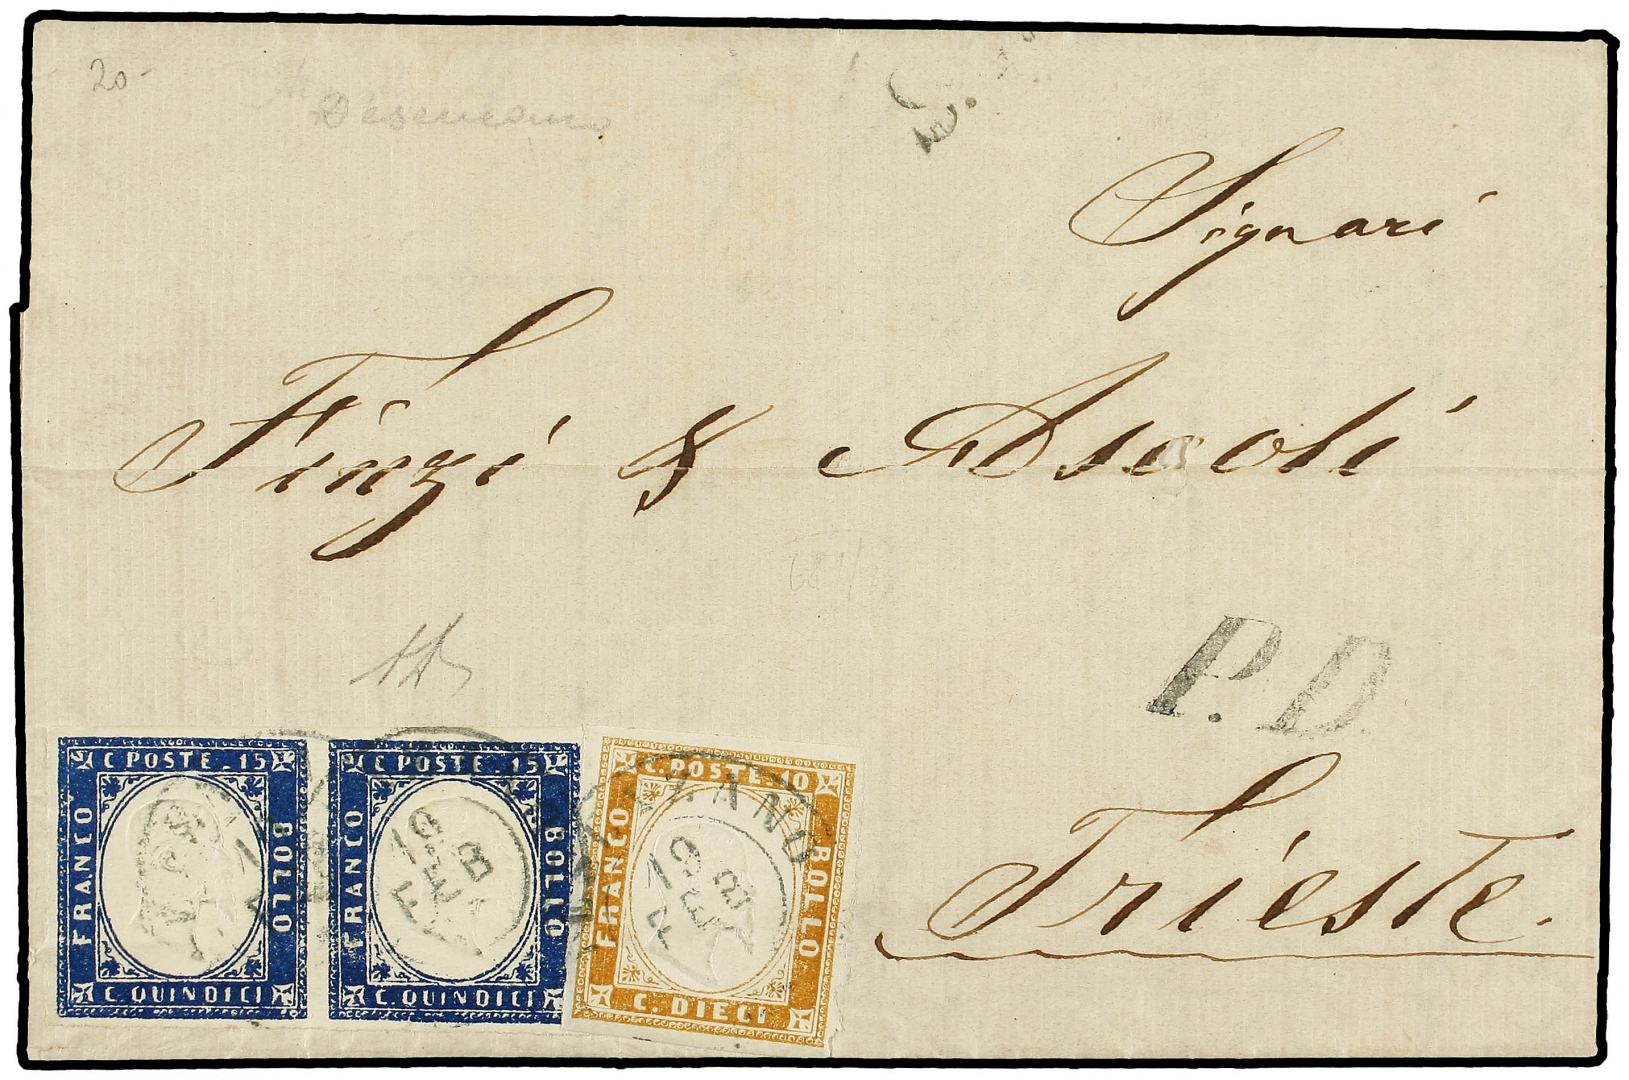 20-
Desenzano
Signari
Finzi & Ascoli
P.D.
C POSTE . 15
FRANCO
BOLLO
C. QUINDICI
C POSTE . 15
FRANCO
BOLLO
C. QUINDICI
C. POSTE 10
FRANCO
BOLLO
C. DIECI
19
FE
19
FE
Trieste.